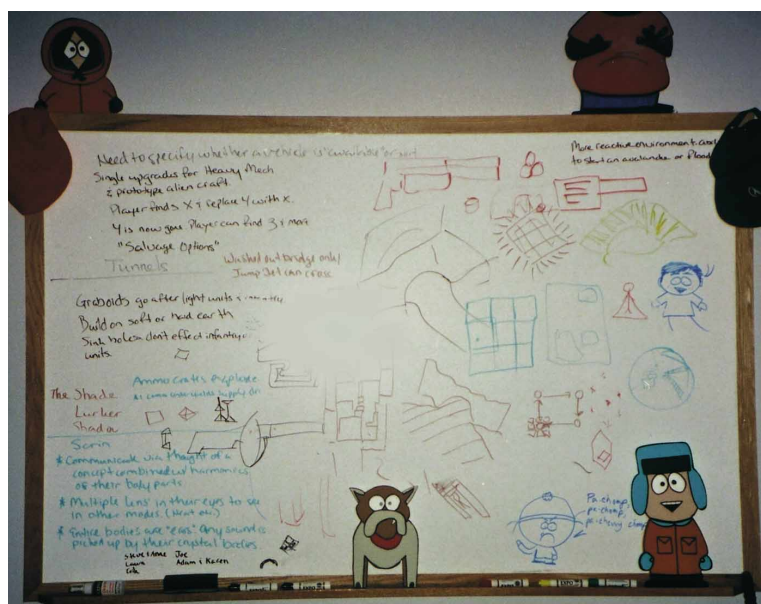 Need to specify whether a vehicle is "available" or not
Single upgrades for Heavy Mech
& prototype alien craft.
Player finds X & replace Y with X.
Y is now gone Player can find 3 & more
"Salvage Options"
More reactive environment.
to start an avalanche or flood
Tunnels
Washed out bridge only
Jump Jet can cross
Graboids go after light units
Build on soft or hard earth
Sink holes don't effect infantry
units
Ammo crates explode
supply
The Shade
Lurker
Shadow
Sorin
* Communicate via thought of a
concept combined w/ harmonics
of their body parts
* Multiple 'lens' in their eyes to see
in other modes. (Heat etc.)
* Entire bodies are "ears" Any sound is
picked up by their crystal bodies.
Steve & Anne Joe
Laura Adam & Karen
Pa-chomp,
pa-chomp,
EXPO